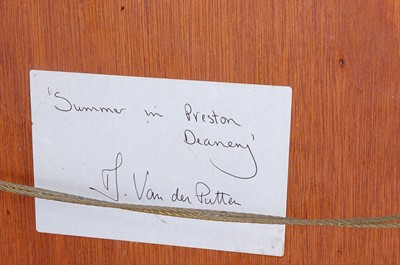 'Summer in Preston
Deanery'
J. Van der Putten